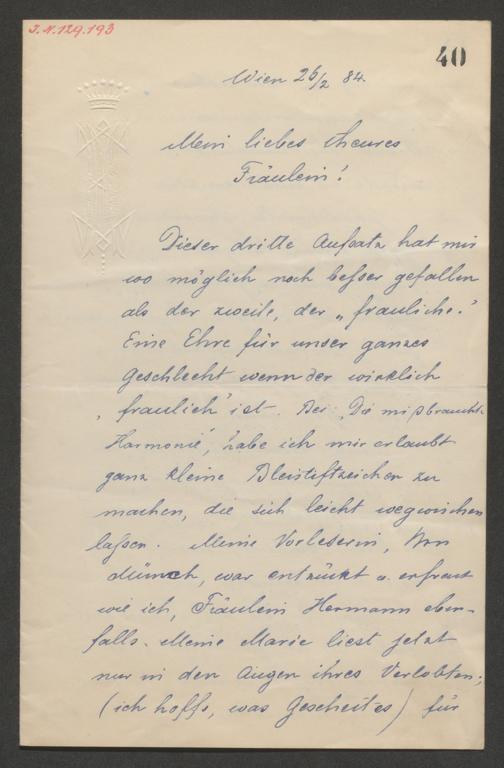 J.N.129.193
40
Wien 26/2 84.
Mein liebes theures
Fräulein!
Dieser dritte Aufsatz hat mir
wo möglich noch beßer gefallen
als der zweite, der „frauliche."
Eine Ehre für unser ganzes
Geschlecht wenn der wirklich
„fraulich" ist. Bei „Die mißbrauchte
Harmonie", habe ich mir erlaubt
ganz kleine Bleistiftzeichen zu
machen, die sich leicht wegwischen
laßen. Meine Vorleserin, 
, war entzückt u. erfreut
wie ich, Fräulein Hermann eben-
falls. Meine Marie liest jetzt
nur in den Augen ihres Verlobten,
(ich hoffe, was Gescheites) für